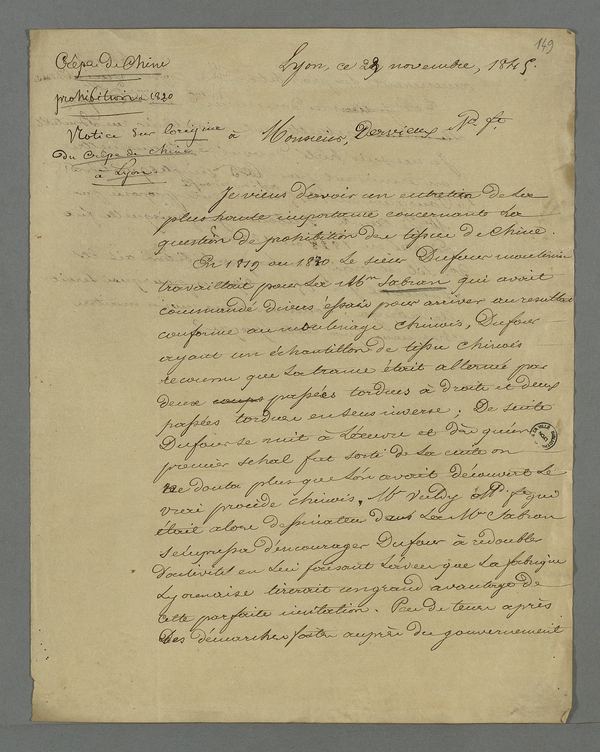 149
Crêpe de Chine
prohibitions 1820
Notice sur l'origine
du Crêpe de Chine
à Lyon.
Lyon, ce 29 novembre, 1845.
à Monsieur, Dervieux
Je viens d'avoir un entretien de la
plus haute importance concernant la
question de prohibition des tissus de Chine.
En 1819 ou 1820 le sieur Dufour moulinier
travaillait pour la Mon Sabran qui avait
commandé divers essais pour arriver au resultat
conforme au moulinage chinois, Dufour
ayant un échantillon de tissu chinois
reconnu que la trame était alternée par
deux coups passées tordues à droite et deux
passées tordues en sens inverse; De suite
Dufour se mit à l'œuvre et dès qu'un
premier schal fut sorti de la cuite on
ne douta plus que l'on avait découvert le
vrai procédé chinois, Mr qui
était alors dessinateur dans la Mon Sabran
s'empressa d'encourager Dufour à redoubler
d'activité en lui faisant l'aveu que la fabrique
Lyonnaise tirerait un grand avantage de
cette parfaite imitation. Peu de tems après
des démarches faites auprès du gouvernement